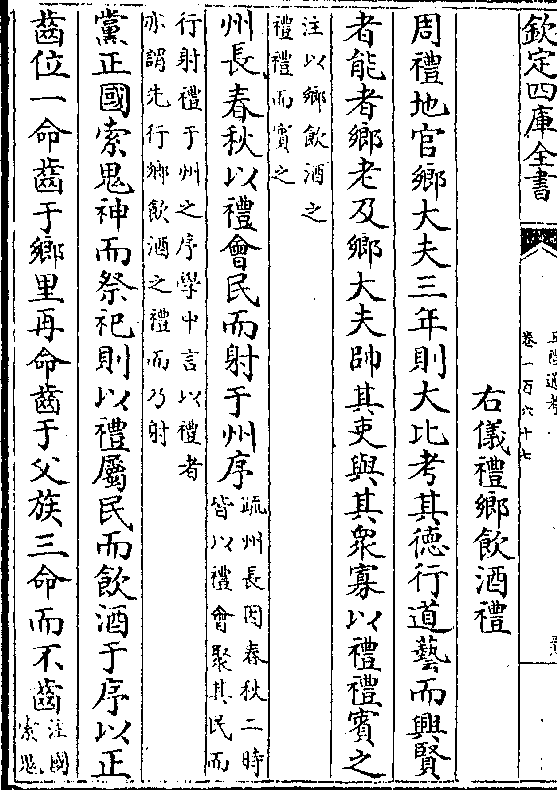 欽定四庫全書
卷一百六十七
右儀禮鄉飲酒禮
周禮地官鄉大夫三年則大比考其德行道藝而興賢
者能者鄉老及鄉大夫帥其吏與其衆寡以禮禮賓之
注以鄉飲酒之
禮禮而賓之
州長春秋以禮會民而射于州序
疏州長因春秋二時
皆以禮會聚其民而
行射禮于州之序學中言以禮者
亦謂先行鄉飲酒之禮而乃射
黨正國索鬼神而祭祀則以禮屬民而飲酒于序以正
齒位一命齒于鄉里再命齒于父族三命而不齒
注國
索鬼